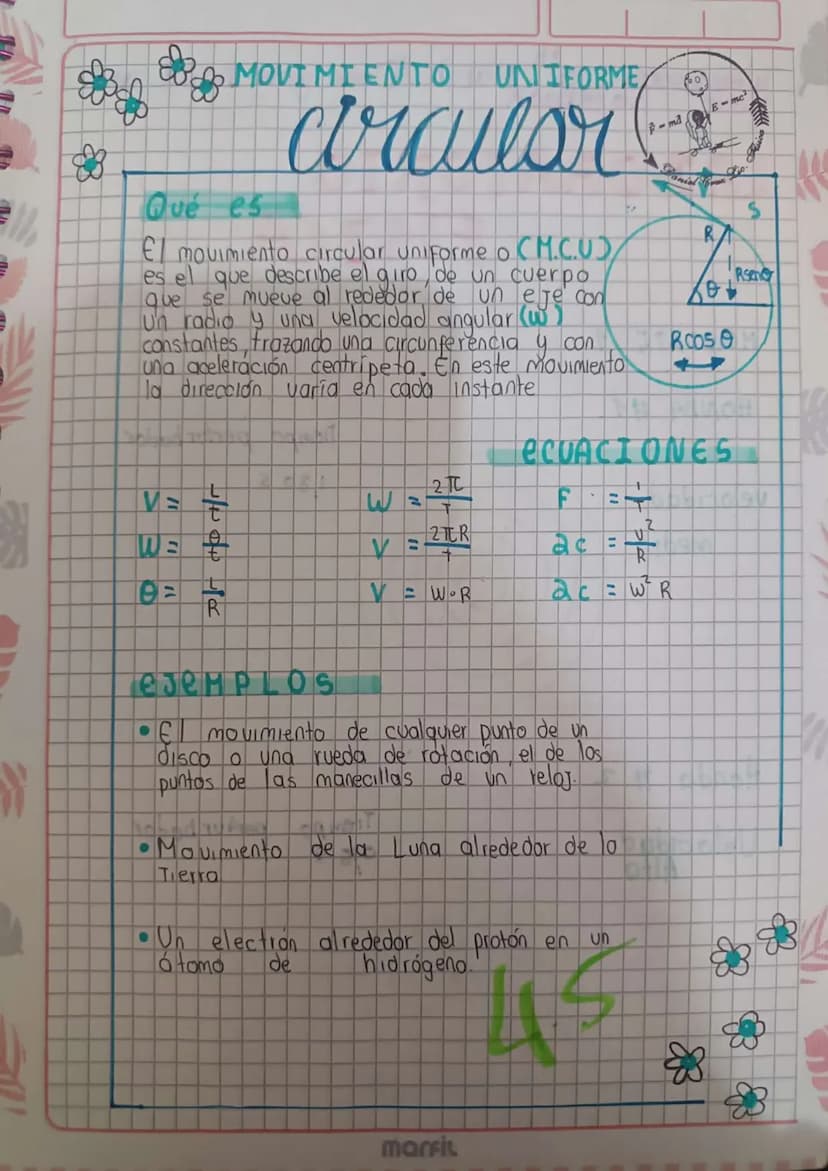 MOVIMIENTO UNIFORME
circular
E=mc²
Qué es
El movimiento circular uniforme o (M.C.U)
es el que describe el giro, de un cuerpo
que se mueve al rededor de un eje con
un radio y una velocidad angular (w)
constantes, trazando una circunferencia y con
una aceleración centrípeta. En este movimiento
la dirección varía en cada instante
S
R
Rsenθ
θ
Rcos θ
ECUACIONES
V = L/t
W = 2π/T
F = 1/T
W = θ/t
V = 2πR/T
ac = v²/R
θ = L/R
V = W·R
ac = w² R
EJEMPLOS
• El movimiento de cualquier punto de un
disco o una rueda de rotación, el de los
puntos de las manecillas de un reloj.
• Movimiento de la Luna alrededor de la
Tierra
• Un electrón alrededor del protón en un
átomo de hidrógeno.
4.5
marfil